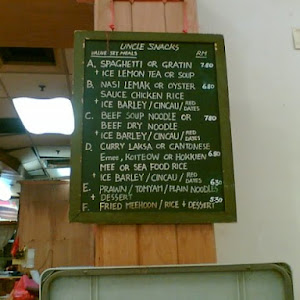 UNCLE SNACKS
VALUE SET MEALS RM
A. SPAGHETTI OR GRATIN 7.80
+ ICE LEMON TEA OR SOUP
B. NASI LEMAK OR OYSTER 6.80
SAUCE CHICKEN RICE
+ ICE BARLEY / CINCAU / RED DATES
C. BEEF SOUP NOODLE OR 7.80
BEEF DRY NOODLE
+ ICE BARLEY / CINCAU / RED DATES
D. CURRY LAKSA OR CANTONESE 6.80
KOITEOW OR HOKKIEN
MEE OR SEA FOOD RICE
+ ICE BARLEY / CINCAU / RED DATES
E. PRAWN / TOMYAM / PLAIN NOODLES 6.30
+ DESSERT
F. FRIED MEEHOON / RICE + DESSERT 5.30